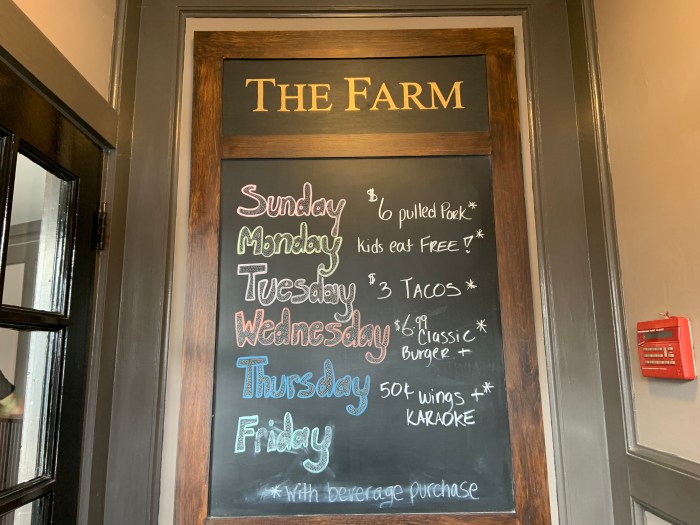 THE FARM
Sunday $6 pulled Pork*
Monday kids eat FREE!*
Tuesday $3 TACOS*
Wednesday $6.99 Classic*
Burger +
Thursday 50¢ wings +*
KARAOKE
Friday
*with beverage purchase